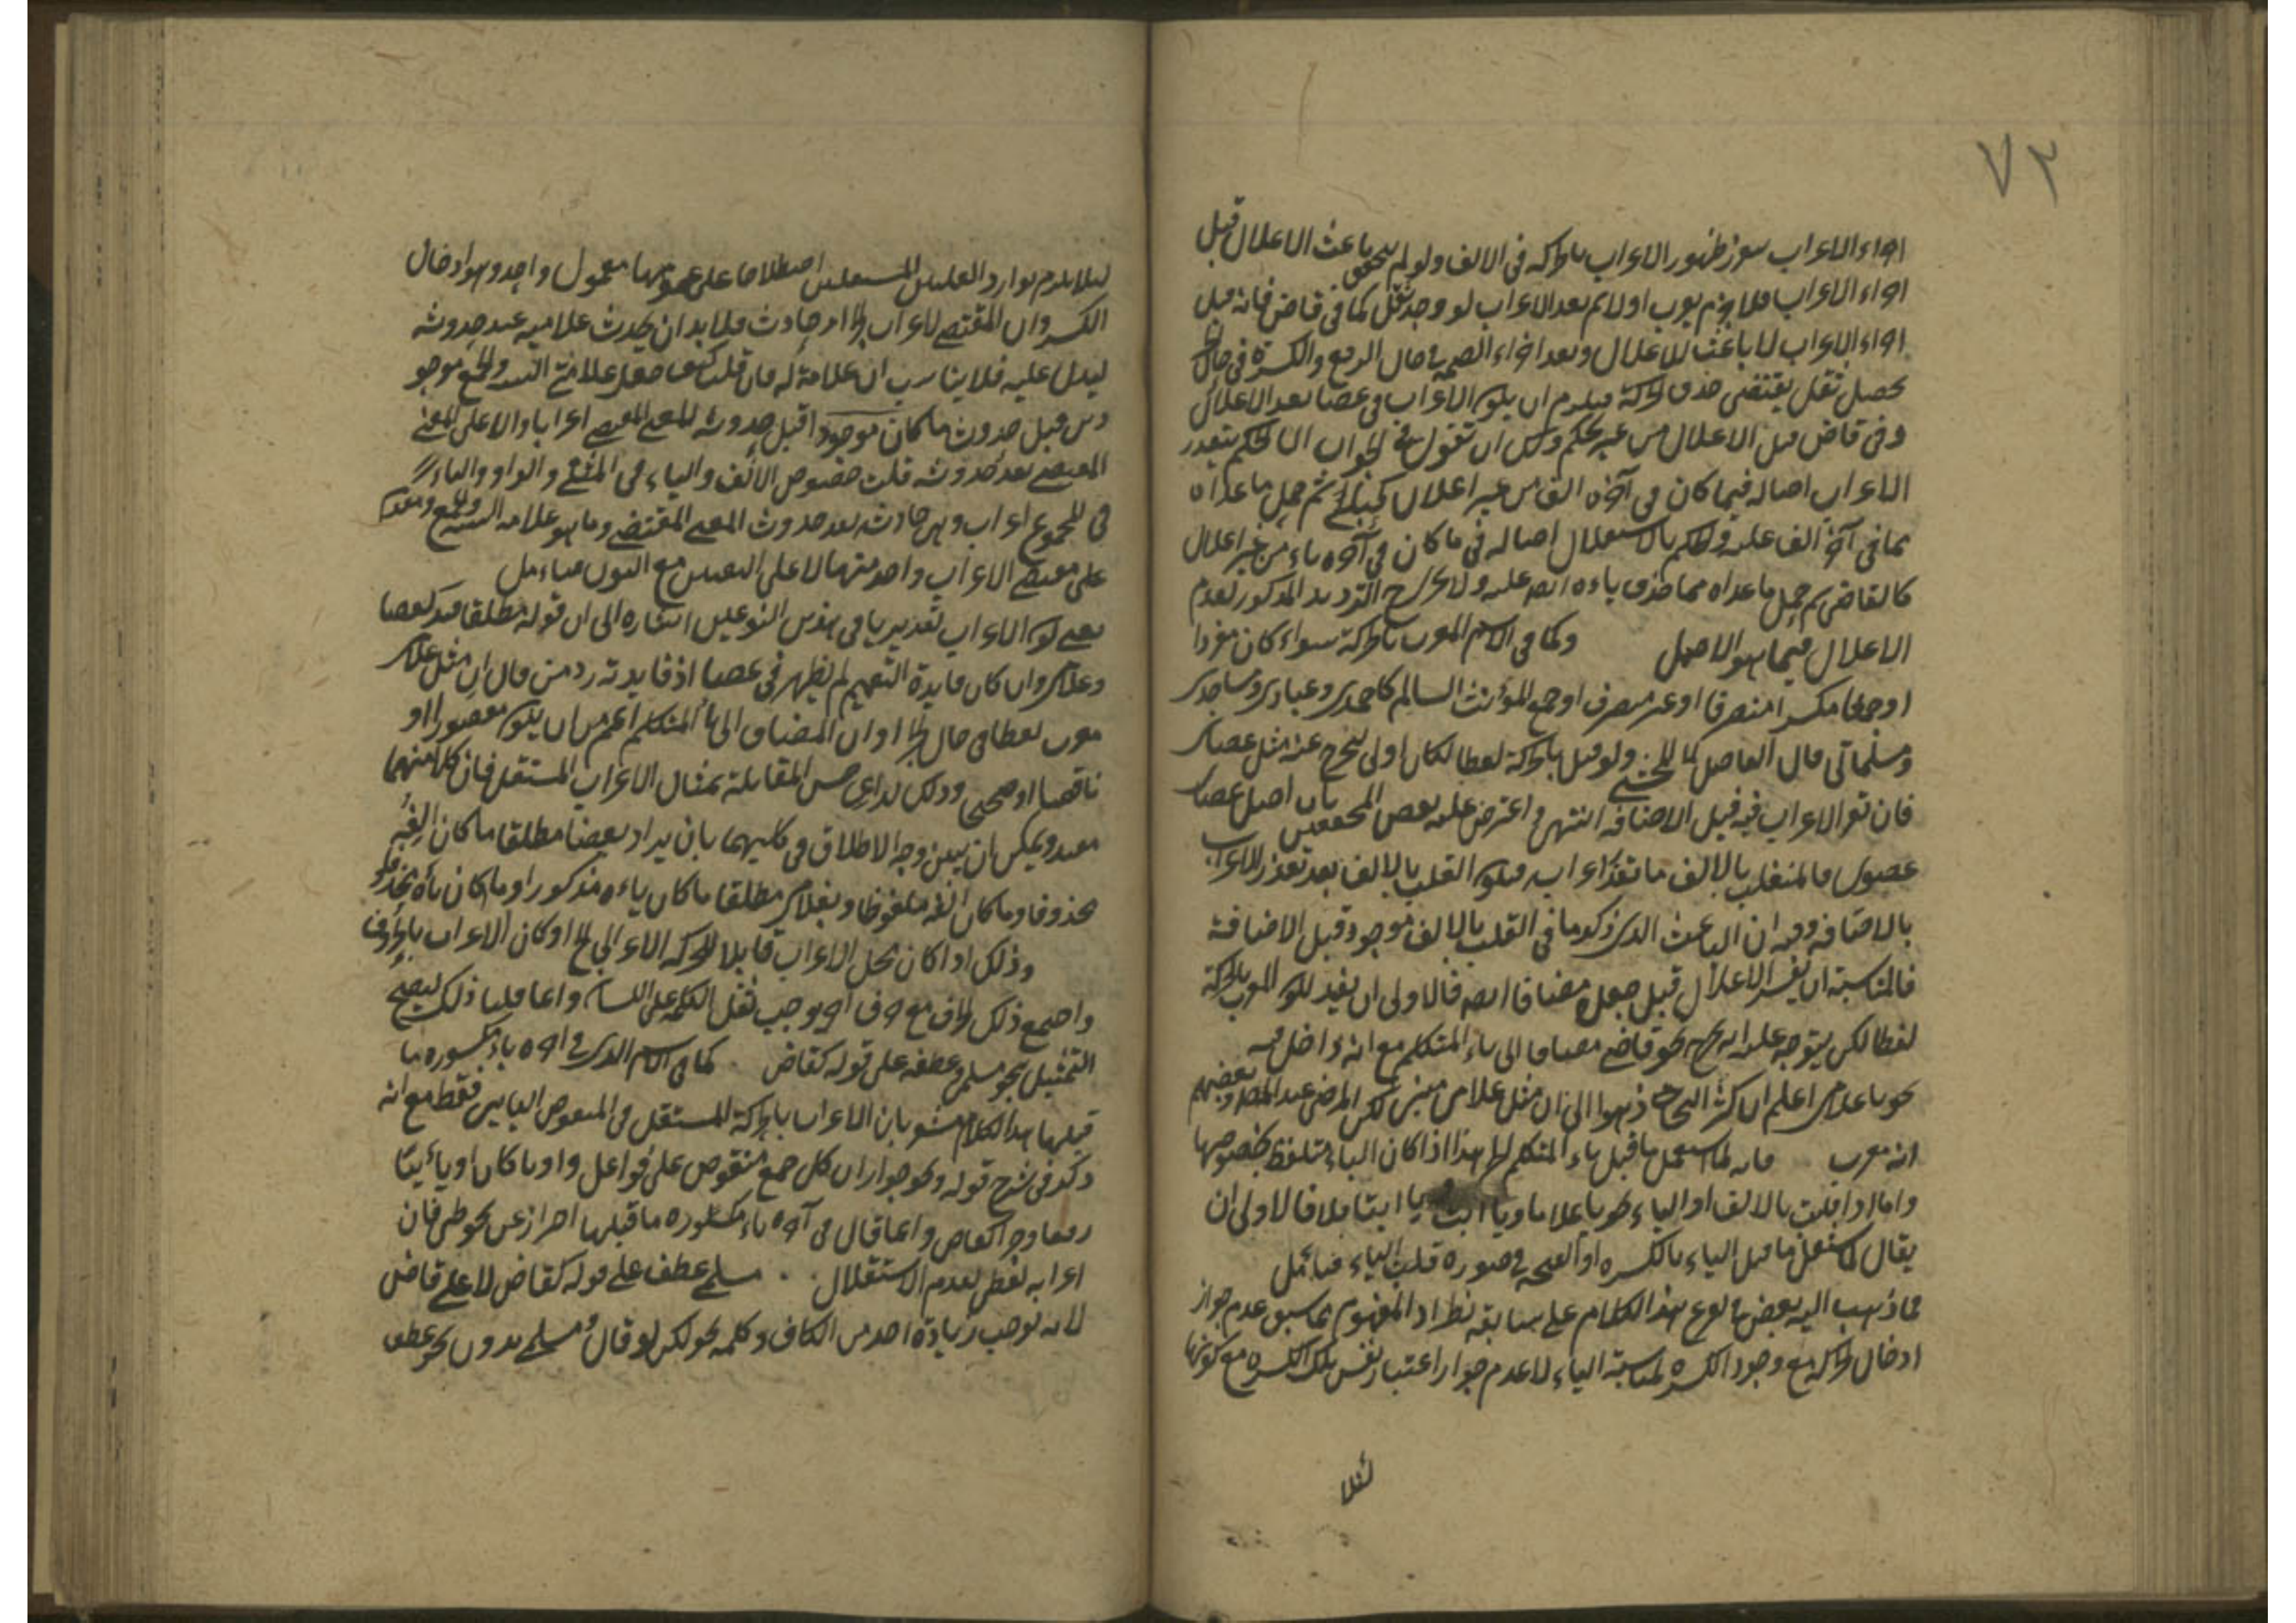 ٧٢
اجراء الاعراب سوز ظهور الاعراب بالحركة فى الالف ولو لم يتحقق باعث الاعلال قبل
اجراء الاعراب فلا يوجب اولا ثم بعد الاعراب لو وجد ثقل كما فى قاض فانه قبل
اجراء الاعراب لا باعث للاعلال وبعد اجراء الضمة فى حال الرفع والكسرة فى حال
يحصل ثقل يقتضى حذف الحركة فيلزم ان يكون الاعراب فى عصا بعد الاعلال
وفى قاض قبل الاعلال من غير حكم ولك ان تقول فى الجواب ان الحكم بتعذر
الاعراب اصالة فيما كان فى آخره الف من غير اعلال كحبلى ثم حمل ما عداه
مما فى آخره الف عليه والحكم بالاستثقال اصالة فى ما كان فى آخره ياء من غير اعلال
كالقاضى ثم حمل ما عداه مما حذف ياءه ايضا عليه ولا الترديد المذكور لعدم
الاعلال فيما هو الاصل وكما فى الاسم المعرب بالحركة سواء كان مفردا
او جمعا مكسرا منصرفا او غير منصرف او جمع المؤنث السالم كاحمدى وعبادى ومساجدى
ومسلماتى قال الفاضل المحشى ولو قيل بالحركة لفظا لكان اولى ليخرج عنه مثل عصاى
فان تعذر الاعراب فيه قبل الاضافة انتهى واعترض عليه بعض المحققين بان اصل عصاى
عصوى فالمنقلب بالالف ما تعذر اعرابه فيكون القلب بالالف بعد تعذر الاعراب
بالاضافة وفيه ان الباعث الذى ذكره فى القلب بالالف موجود قبل الاضافة
فالمناسبة ان يفسر الاعلال قبل جعله مضافا ايضا فالاولى ان يقيد المعرب بالحركة
لفظا لكن يتوجه عليه انه يخرج نحو قاضى مضافا الى ياء المتكلم مع انه داخل فيه
نحو يا غلامى اعلم ان اكثر النحاة ذهبوا الى ان مثل غلامى مبنى لكن المرضى عند المصنف وبعضهم
انه معرب فانه لما اشتغل ما قبل ياء المتكلم الخ هذا اذا كان الياء متلفظ بخصوصها
واما اذا قلبت بالالف او الياء نحو يا غلاما ويا ابت ويا ابتا فلا فالاولى ان
يقال لما اشتغل ما قبل الياء بالكسرة او الفتحة فى صورة قلب الياء فتأمل
فما ذهب اليه بعض فرع هذا الكلام على سابقه نظرا اذ المفهوم مما سبق عدم جواز
ادخال الحركة مع وجود الكسرة لمناسبة الياء لا عدم جواز اعتبار نفس تلك الكسرة مع كونها
لئلا
لئلا يلزم توارد العلتين المستقلتين اصطلاحا على معمول واحد وهو ادخال
الكسر وان المقتضى للاعراب امر حادث فلا بد ان يحدث علامته عند حدوثه
ليدل عليه فلا يناسب ان علامة له فان قلت كيف جعل علامتى التثنية والجمع موجو
دين قبل حدوث ما كان موجودا قبل حدوثه للمعنى المقتضى اعرابا والا على المعنى
المقتضى بعد حدوثه قلت خصوص الالف والياء فى المثنى والواو والياء
فى المجموع اعراب وهى حادثة بعد حدوث المعنى المقتضى وما هو علامة التثنية والجمع
على مقتضى الاعراب واحد منهما لا على التعيين مع النون فتأمل
يعنى كون الاعراب تقديريا فى هذين النوعين اشارة الى ان قوله مطلقا قيد لعصا
وغلامى وان كان فايدة التعميم لم يظهر فى عصا اذ فايدته رد من قال ان مثل غلامى
معرب لفظا فى حال الجر او ان المضاف الى ياء المتكلم اعم من ان يكون مقصورا او
ناقصا او صحيحا وذلك لداعى حسن المقابلة بمثال الاعراب المستقل فان كلا منهما
مقيد ويمكن ان يبين وجه الاطلاق فى كليهما بان يراد بعصا مطلقا ما كان الفه
محذوفا وما كان الفه ملفوظا وبغلامى مطلقا ما كان ياءه مذكورا وما كان ياءه محذوفا
وذلك اذا كان محل الاعراب قابلا للحركة الاعرابى الخ او كان الاعراب بالحروف
واجتمع ذلك الحرف مع حرف آخر يوجب ثقل الكلمة على اللسان وانما قلنا ذلك ليصح
التمثيل بنحو مسلمى وعطفه على قوله كقاض كما فى الاسم الذى فى آخره ياء مكسورة ما
قبلها هذا الكلام مشعر بان الاعراب بالحركة المستقل فى المنقوص اليائى فقط مع انه
ذكر فى شرح قوله ونحو جوار ان كل جمع منقوص على فواعل واويا كان او يائيا
رفعا وجرا كقاض وانما قال فى آخره ياء مكسورة ما قبلها احتراز عن نحو ظبى فان
اعرابه لفظى لعدم الاستثقال مسلمى عطف على قوله كقاض لا على قاض
لانه يوجب زيادة احد من الكاف وكلمة نحو لكن لو قال ومسلمى بدون نحو عطف